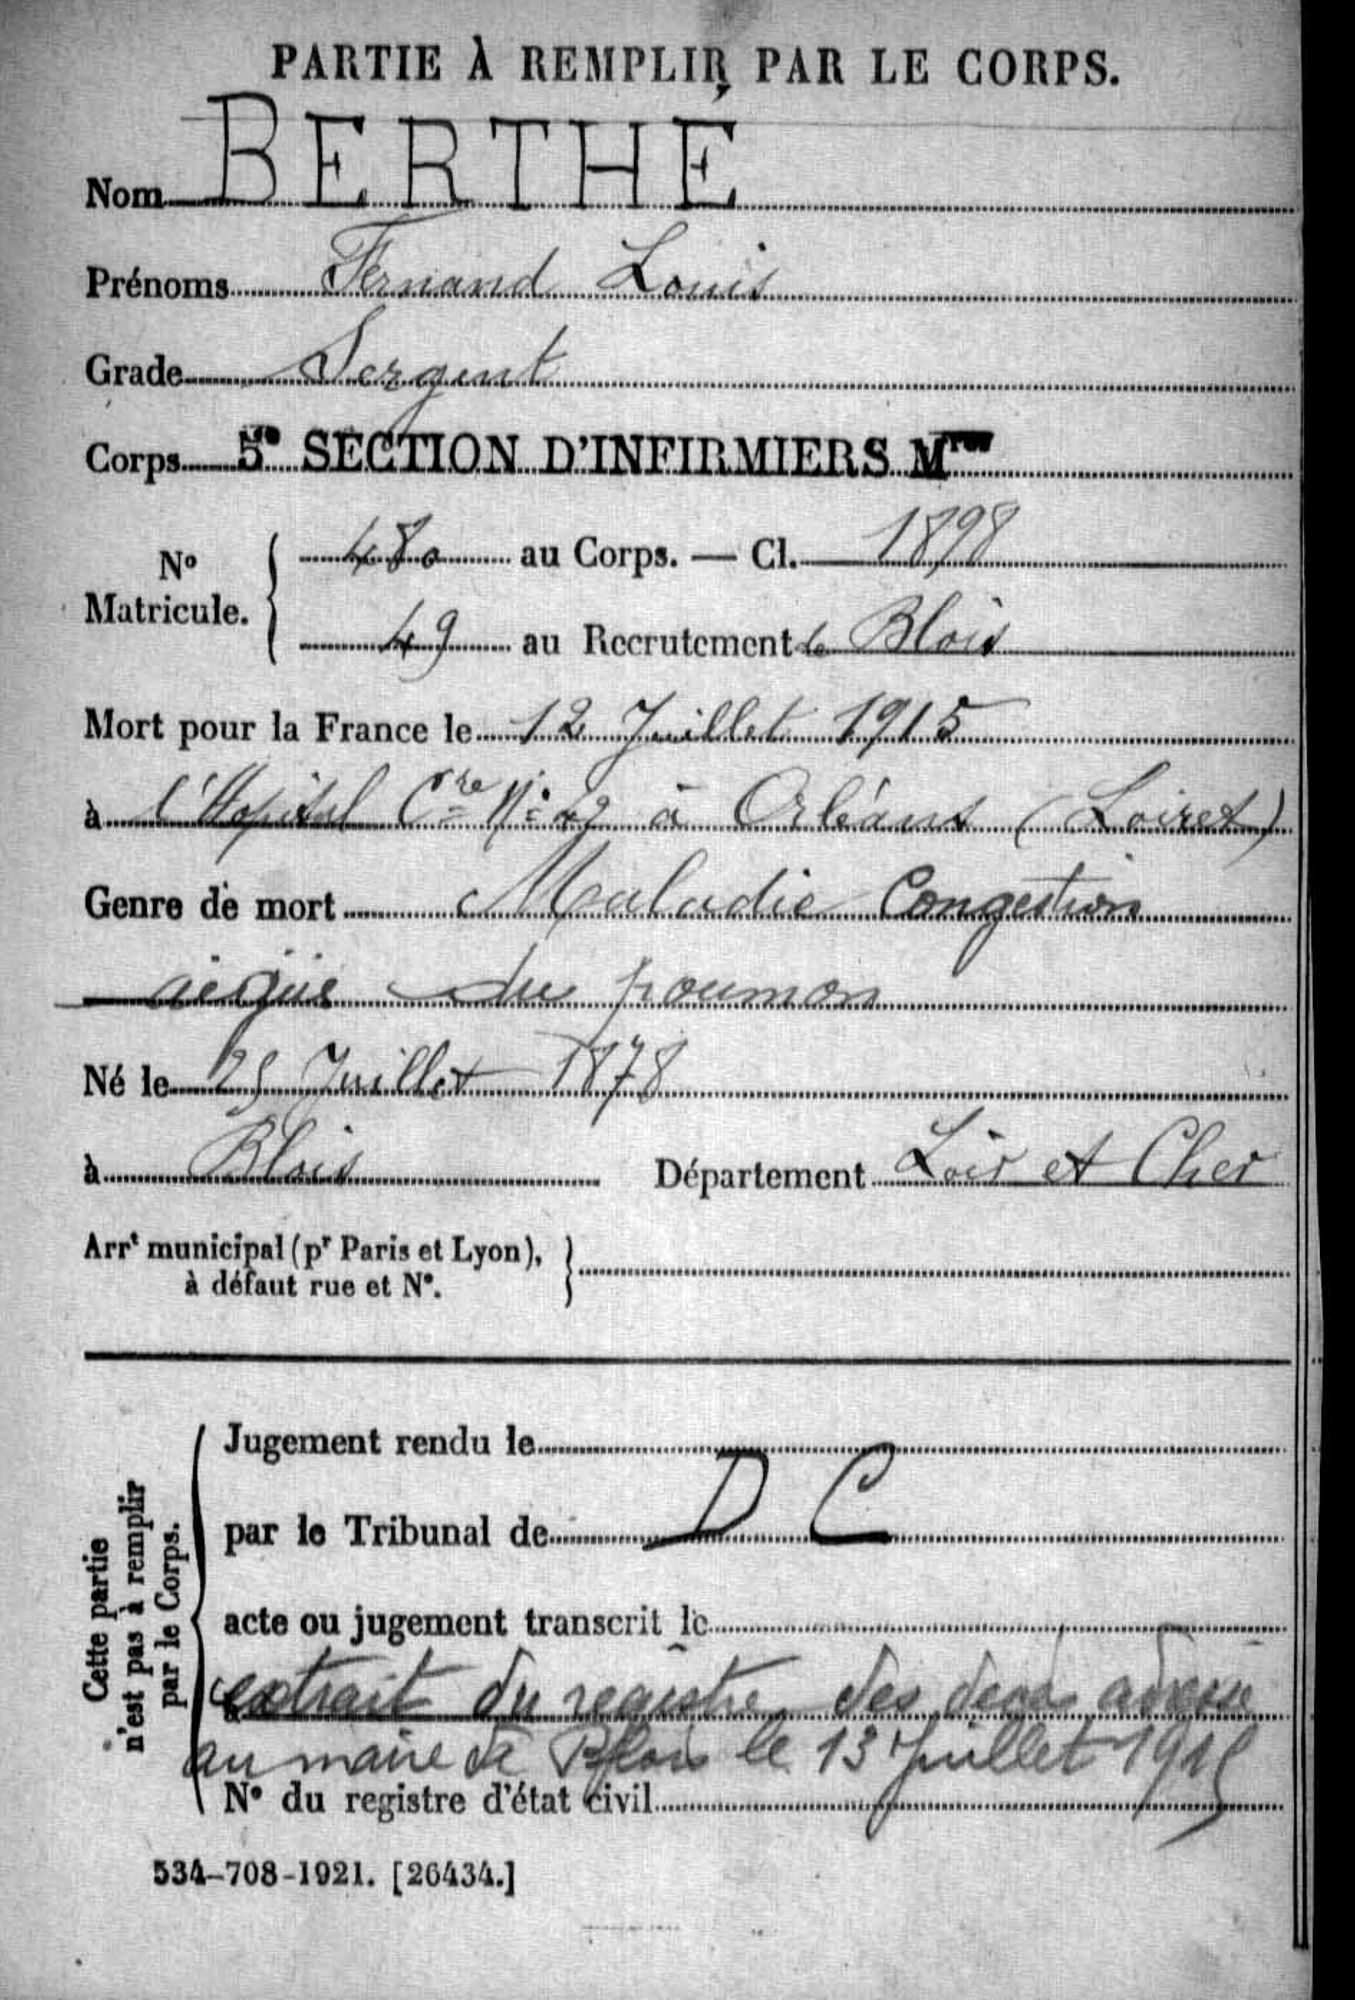 PARTIE À REMPLIR PAR LE CORPS.
Nom BERTHÉ
Prénoms Fernand Louis
Grade Sergent
Corps 5e SECTION D'INFIRMIERS Mres
No Matricule. { 480 au Corps. — Cl. 1898
49 au Recrutement de Blois
Mort pour la France le 12 Juillet 1915
à l'Hopital Cre No 49 à Orléans (Loiret)
Genre de mort Maladie Congestion
aigüe du poumon
Né le 25 Juillet 1878
à Blois Département Loir et Cher
Arrt municipal (pr Paris et Lyon),
à défaut rue et No.
Cette partie
n'est pas à remplir
par le Corps.
Jugement rendu le
par le Tribunal de D C
acte ou jugement transcrit le
à extrait du registre des décès adressé
au maire de Blois le 13 Juillet 1915
No du registre d'état civil
534-708-1921. [26434.]